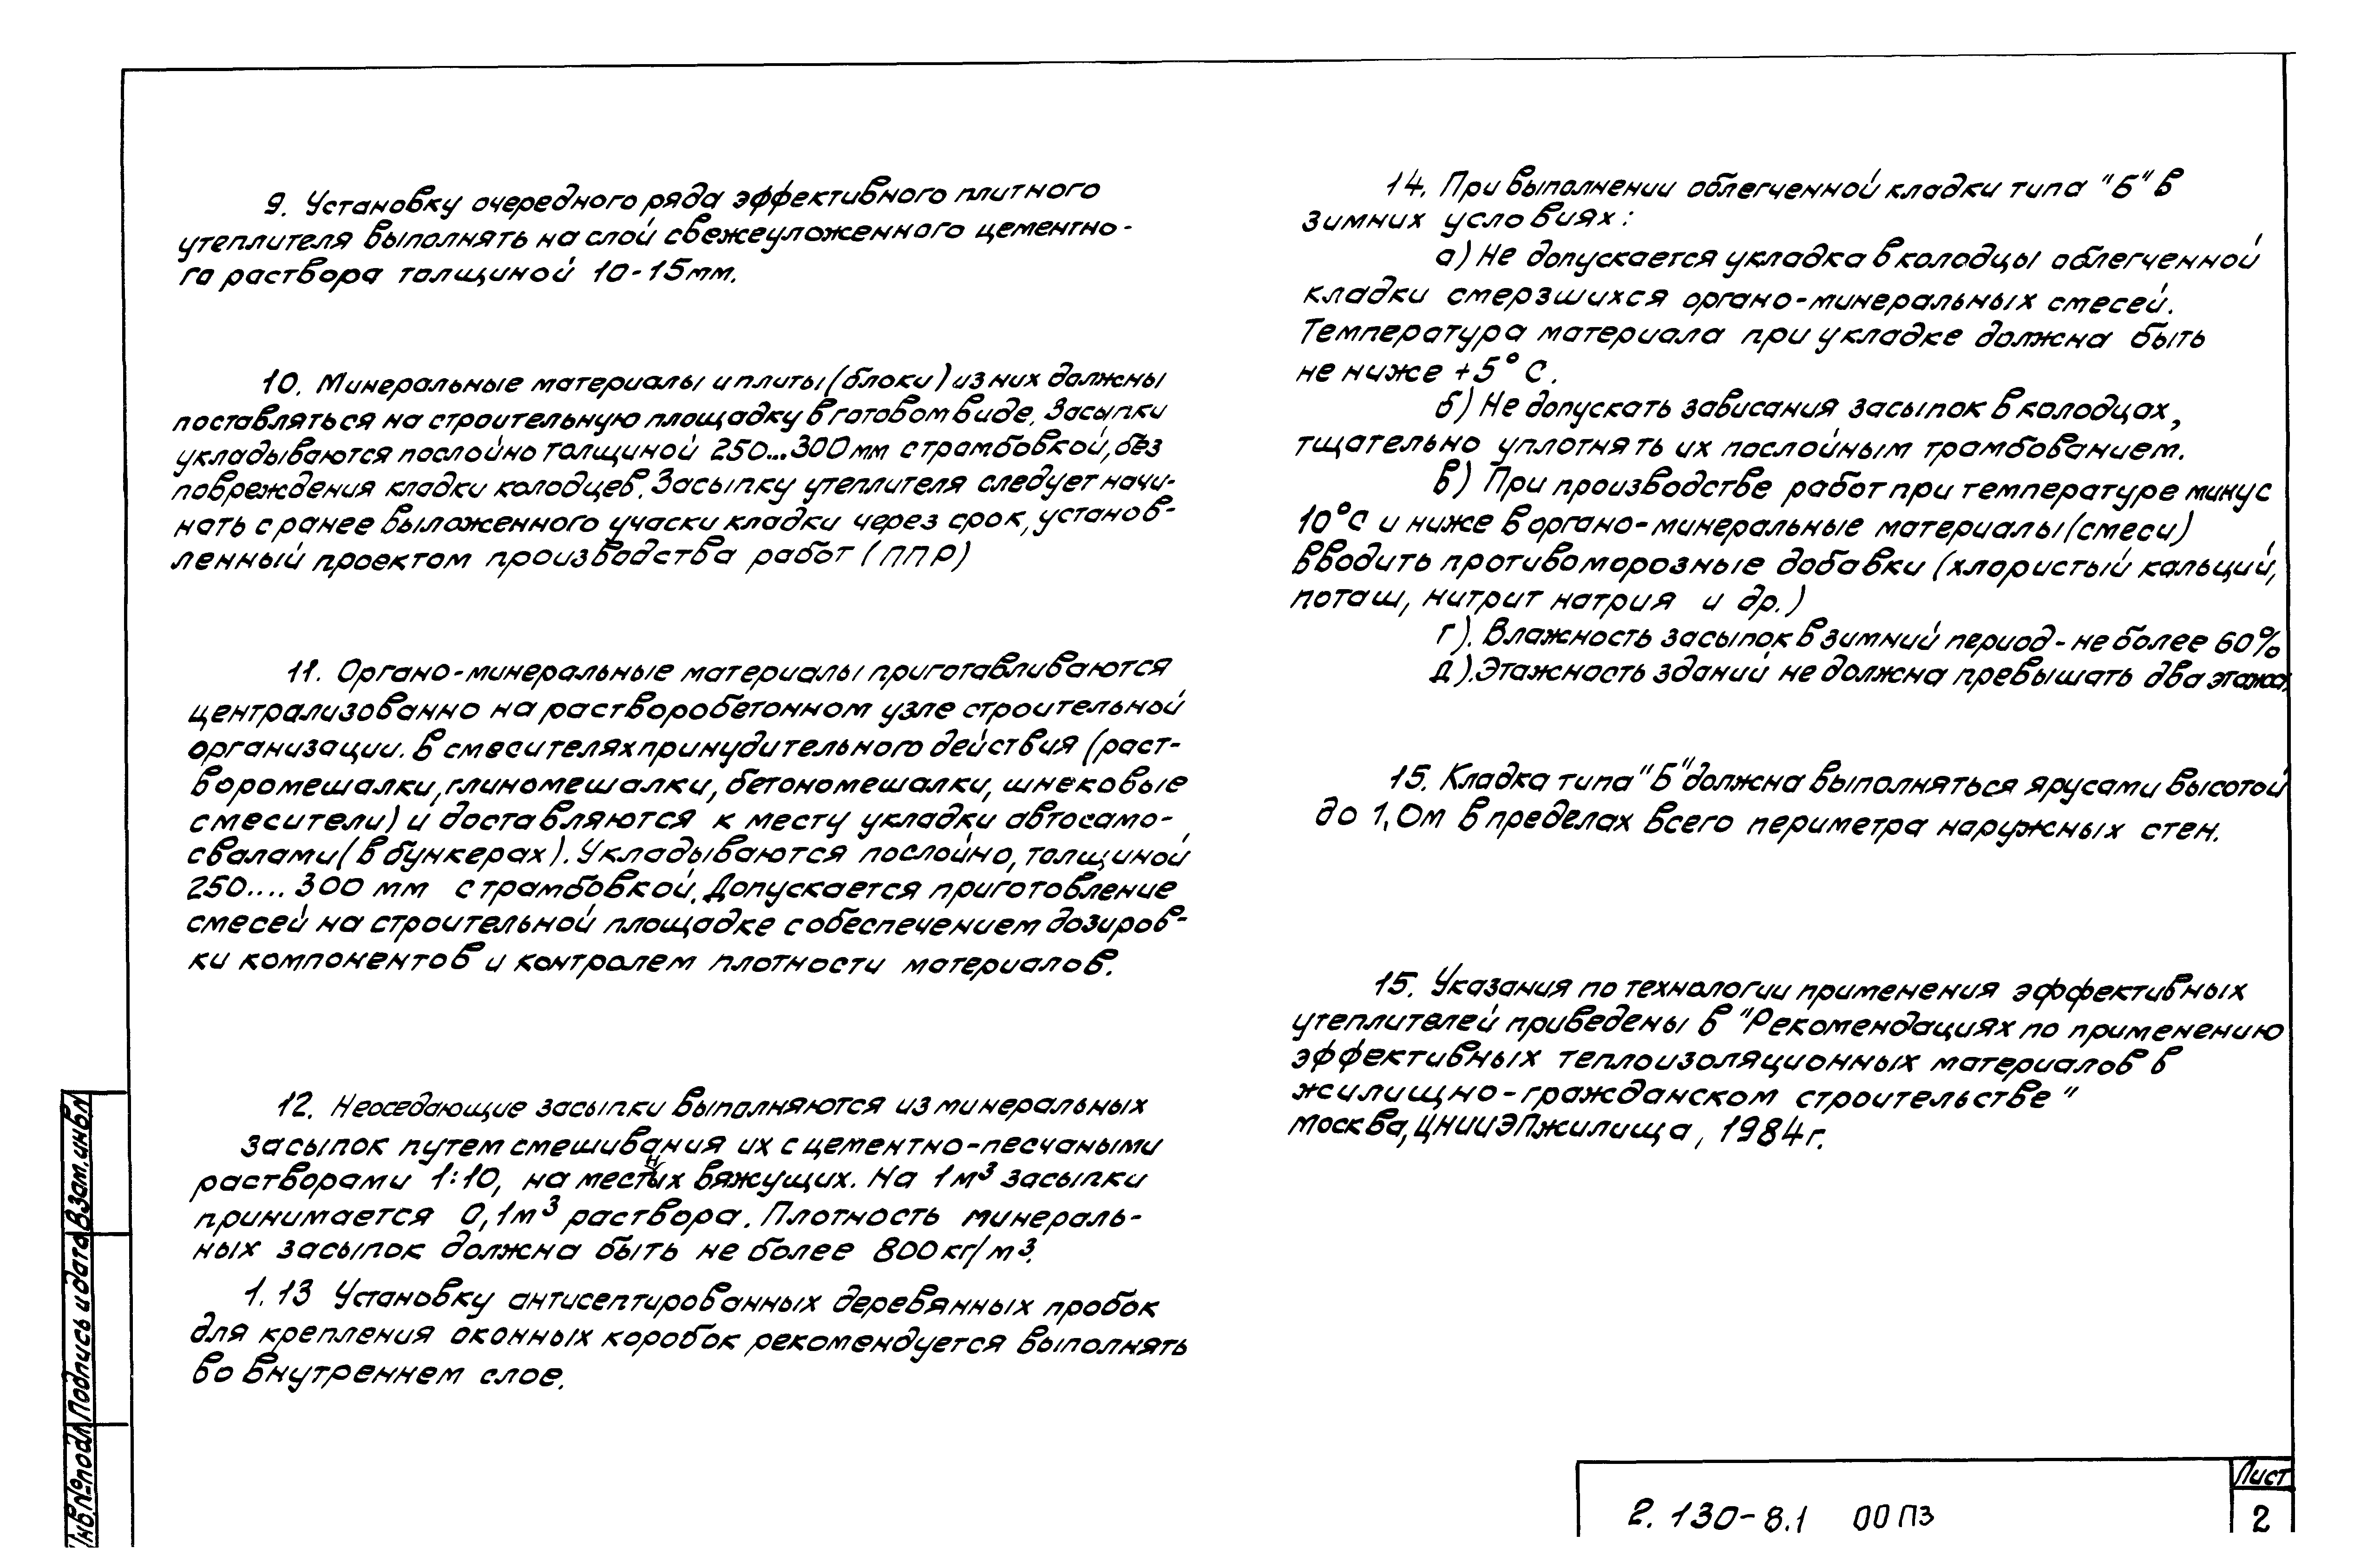 9. Установку очередного ряда эффективного плитного
утеплителя выполнять на слой свежеуложенного цементно-
го раствора толщиной 10-15мм.
10. Минеральные материалы и плиты (блоки) из них должны
поставляться на строительную площадку в готовом виде. Засыпки
укладываются послойно толщиной 250...300мм с трамбовкой, без
повреждения кладки колодцев. Засыпку утеплителя следует начи-
нать с ранее выложенного учаски кладки через срок, установ-
ленный проектом производства работ (ППР)
11. Органо-минеральные материалы приготавливаются
централизованно на растворобетонном узле строительной
организации. В смесителях принудительного действия (раст-
воромешалки, глиномешалки, бетономешалки, шнековые
смесители) и доставляются к месту укладки автосамо-
свалами (в бункерах). Укладываются послойно, толщиной
250.... 300 мм с трамбовкой. Допускается приготовление
смесей на строительной площадке с обеспечением дозиров-
ки компонентов и контролем плотности материалов.
12. Неоседающие засыпки выполняются из минеральных
засыпок путем смешивания их с цементно-песчаными
растворами 1:10, на местных вяжущих. На 1м³ засыпки
принимается 0,1м³ раствора. Плотность минераль-
ных засыпок должна быть не более 800кг/м³.
1.13 Установку антисептированных деревянных пробок
для крепления оконных коробок рекомендуется выполнять
во внутреннем слое.
14. При выполнении облегченной кладки типа "Б" в
зимних условиях:
а) Не допускается укладка в колодцы облегченной
кладки смерзшихся органо-минеральных смесей.
Температура материала при укладке должна быть
не ниже +5° С.
б) Не допускать зависания засыпок в колодцах,
тщательно уплотнять их послойным трамбованием.
в) При производстве работ при температуре минус
10°С и ниже в органо-минеральные материалы (смеси)
вводить противоморозные добавки (хлористый кальций,
поташ, нитрит натрия и др.)
г). Влажность засыпок в зимний период - не более 60%
д). Этажность зданий не должна превышать два этажа.
15. Кладка типа "Б" должна выполняться ярусами высотой
до 1,0м в пределах всего периметра наружных стен.
15. Указания по технологии применения эффективных
утеплителей приведены в "Рекомендациях по применению
эффективных теплоизоляционных материалов в
жилищно-гражданском строительстве"
Москва, ЦНИИЭПжилища, 1984г.
Инв.№подл Подпись и дата Взам.инв№
2.130-8.1 00ПЗ
Лист
2